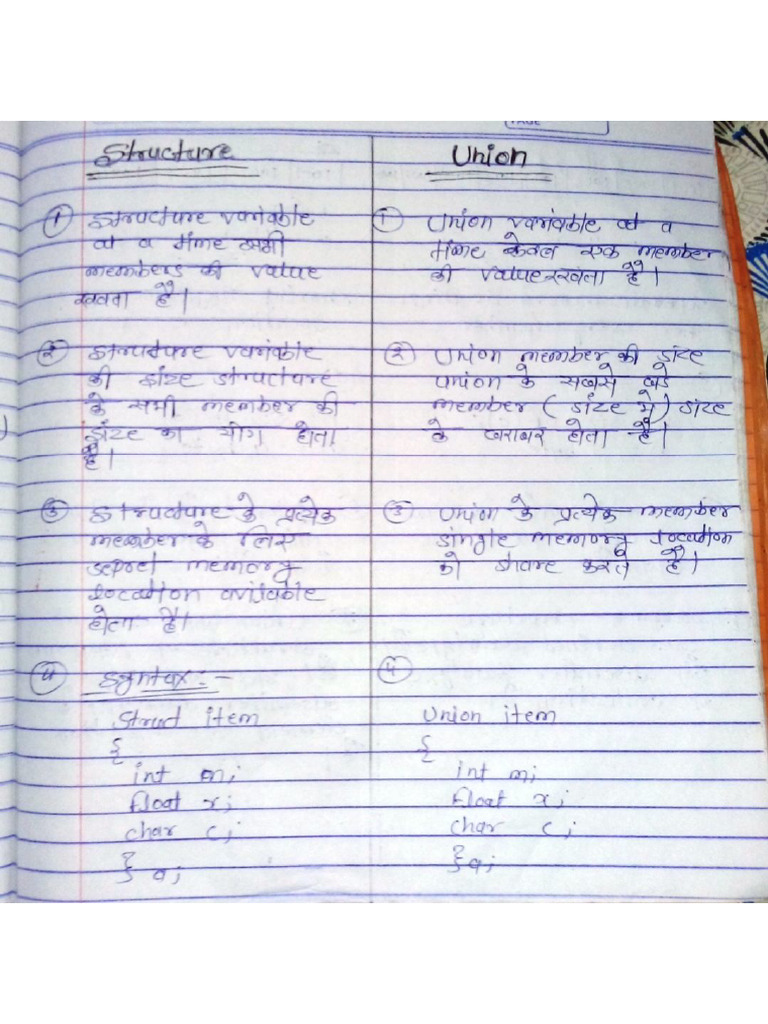 PAGE
Structure
① Structure variable
at a time सभी
members की value
रखता है।
② Structure variable
की साईज structure
के सभी member की
साईज का योग होता
है।
③ Structure के प्रत्येक
member के लिए
sepret memory
location avilable
होता है।
④ Syntax:-
Struct item
{
int m;
float x;
char c;
} a;
Union
① Union variable at a
time केवल एक member
की value रखता है।
② Union member की साईज
union के सबसे बडे
member (साईज मे) साईज
के बराबर होता है।
③ Union के प्रत्येक member
single memory location
को share करते है।
④
Union item
{
int m;
float x;
char c;
} a;